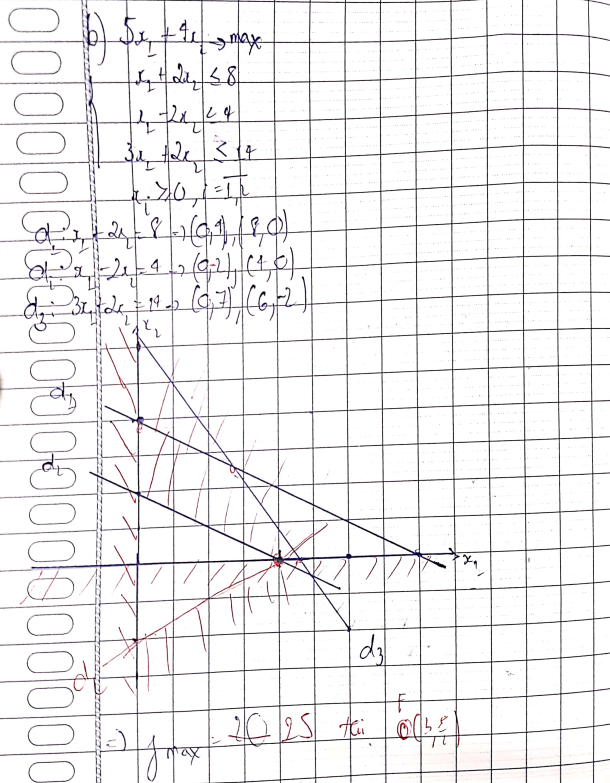 b) 5x₁ + 4x₂ → max
x₁ + 2x₂ ≤ 8
x₁ - 2x₂ ≤ 4
3x₁ + 2x₂ ≤ 14
xᵢ ≥ 0, i = 1,2
d₁: x₁ + 2x₂ = 8 → (0,4), (8,0)
d₂: x₁ - 2x₂ = 4 → (0,-2), (4,0)
d₃: 3x₁ + 2x₂ = 14 → (0,7), (6,-2)
x₂
d₁
d₂
x₁
d₃
d₂
⇒ fmax = 20 25 tại
F